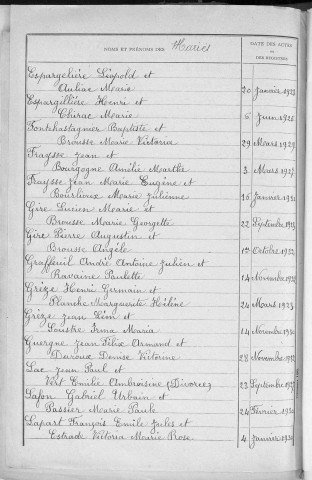 NOMS ET PRÉNOMS DES Mariés
DATE DES ACTES
OU
DES REGISTRES
Espargelière Léopold et
Auliac Marie 20 Janvier
Espargillière Henri et
Chirac Marie 6 Juin
Fontchastagner Baptiste et
Brousse Marie Victoria 29 Mars 1929
Fraysse Jean et
Bourgogne Amélie Marthe 3 Mars
Fraysse Jean Marie Eugène et
Bourlioux Marie Julienne 16 Janvier
Gire Lucien Marie et
Brousse Marie Georgette 22 Septembre
Gire Pierre Augustin et
Brousse Angèle 1er Octobre 1932
Graffeuil André Antoine Julien et
Ravaine Paulette 14 Novembre
Grèze Henri Germain et
Planche Marguerite Hélène 24 Mars
Grèze Jean Léon et
Soustre Irma Maria 14 Novembre
Guergne Jean Félix Armand et
Duroux Denise Victorine 28 Novembre
Lac Jean Paul et
Vert Emilie Ambroisine (Divorce) 23 Septembre
Lafon Gabriel Urbain et
Passier Marie Paule 24 Février
Lapart François Emile Jules et
Estrade Victoria Marie Rose 4 Janvier